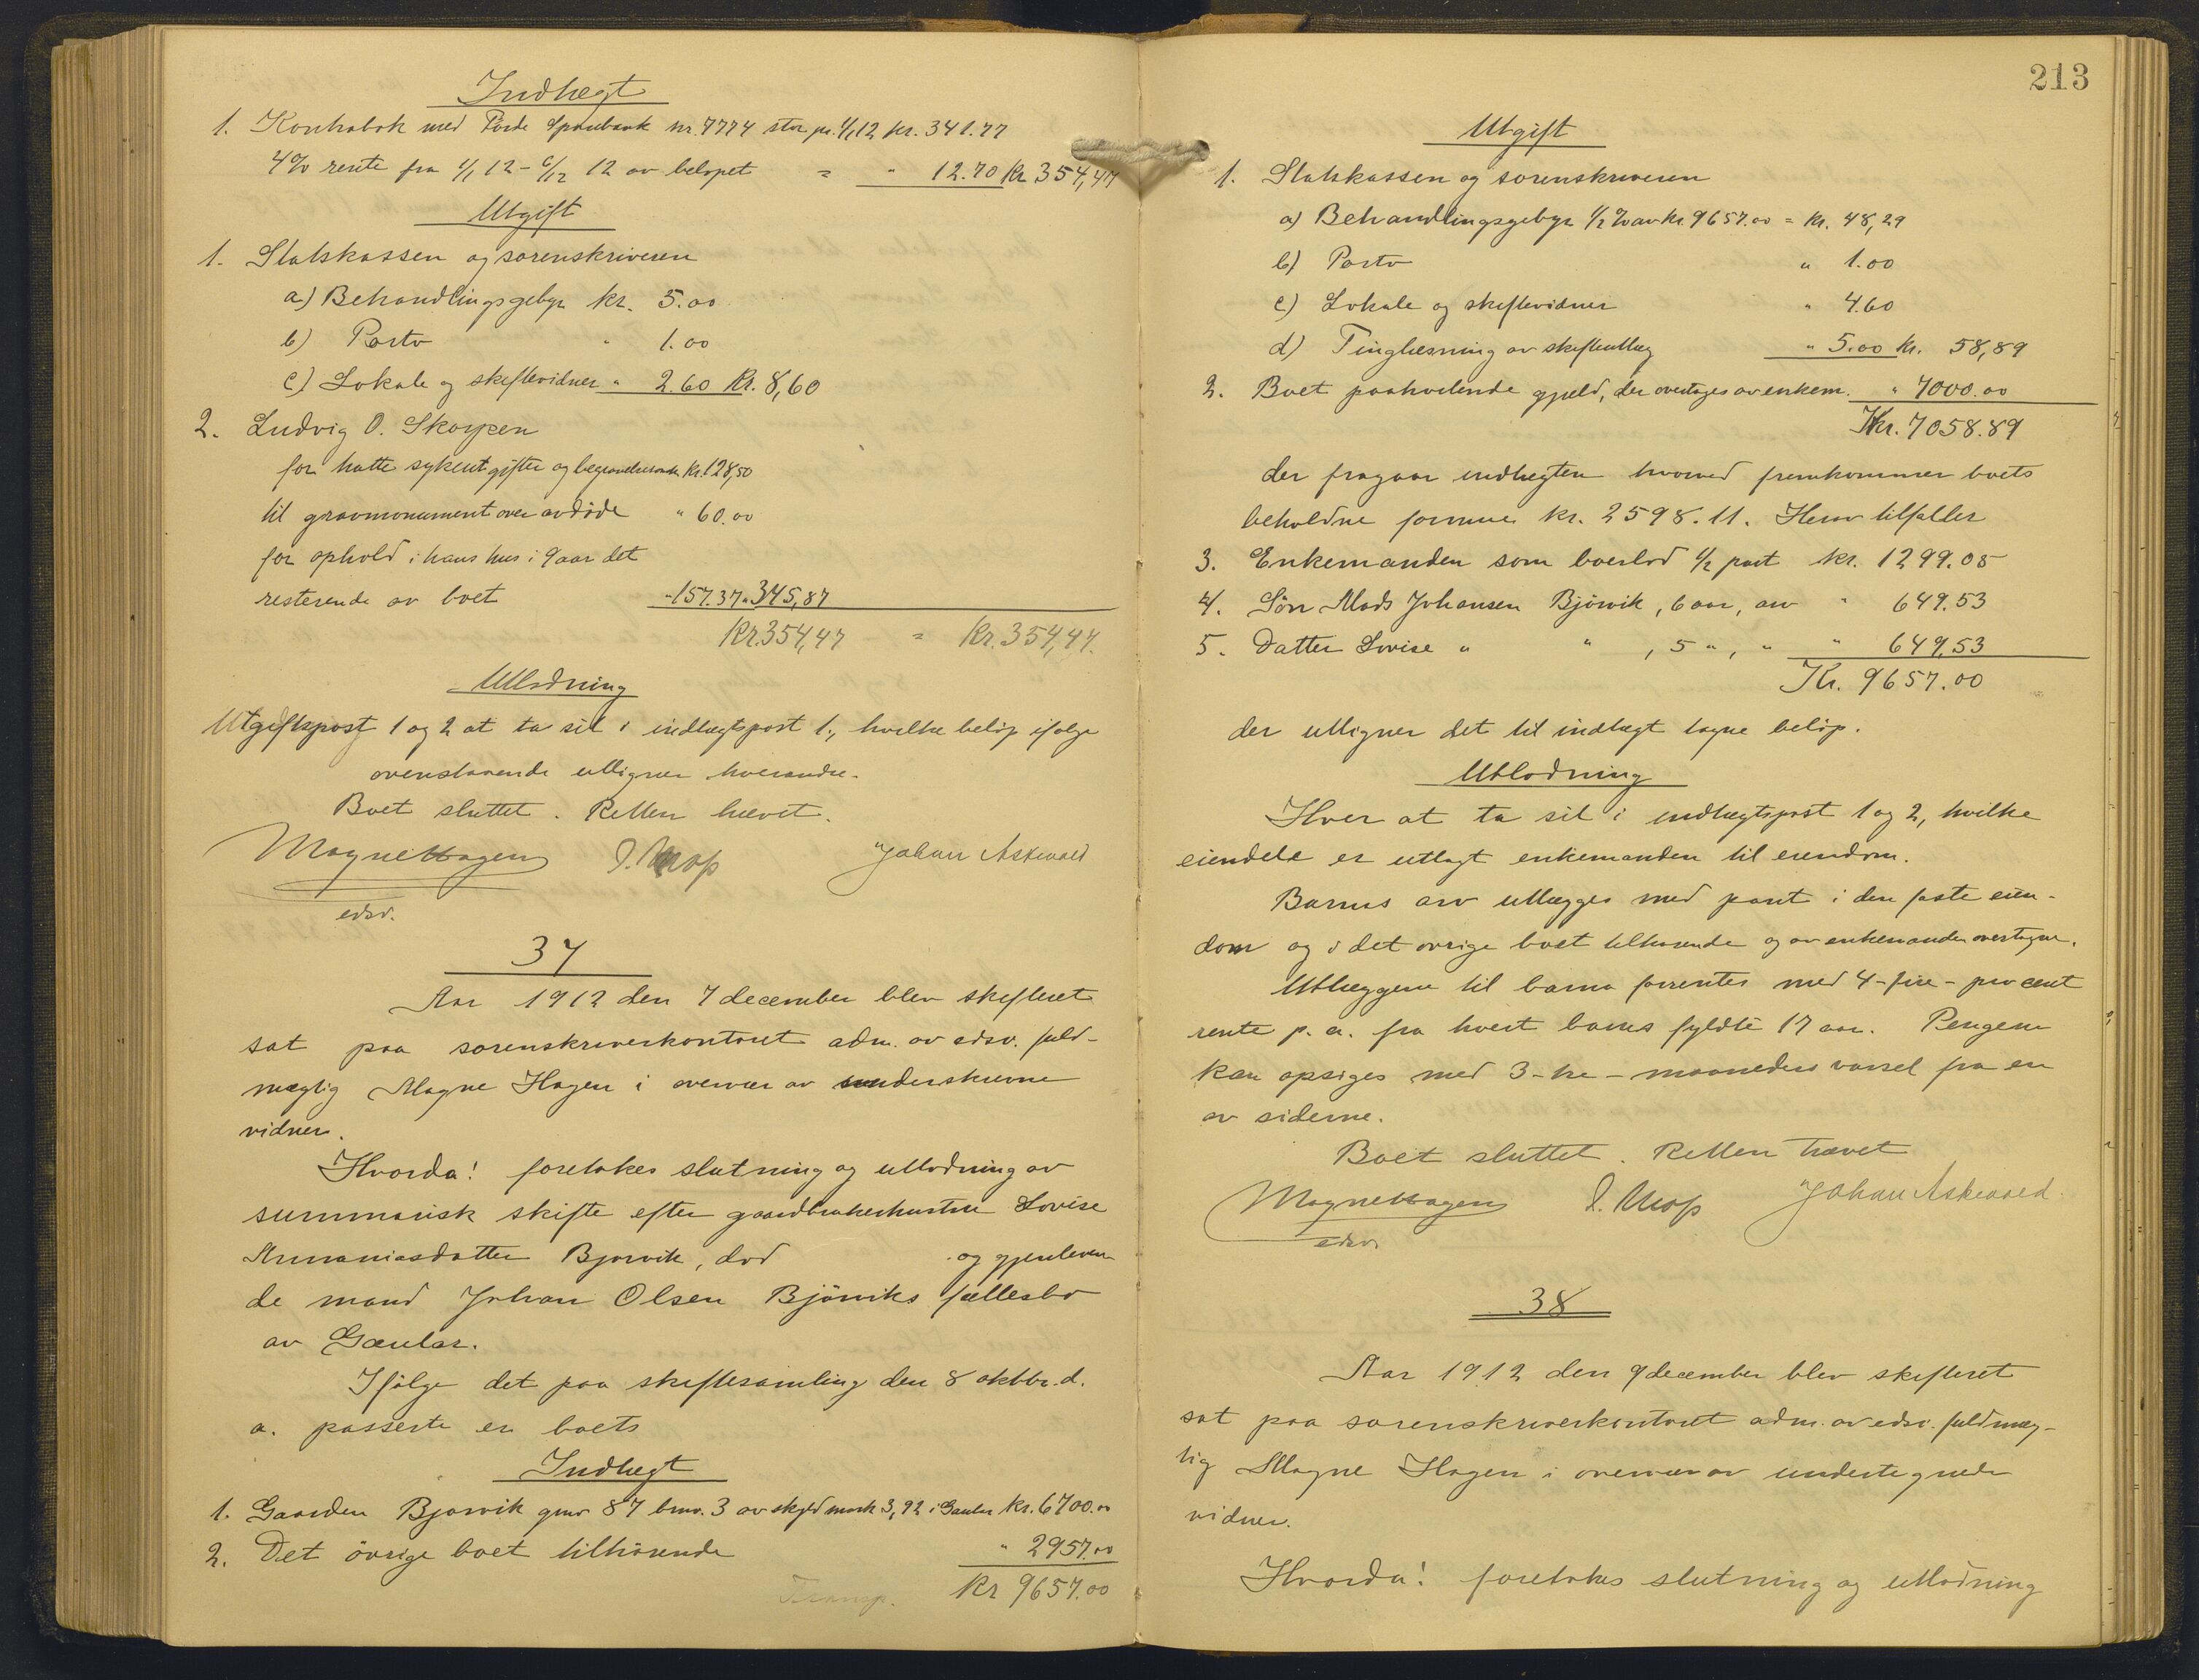 Indtægt
1. Kontrabok med Førde Sparebank nr. 7774 stor. pr. 1/1 12 kr. 341.77
4% rente fra 1/1 12 - 6/12 12 av beløpet = " 12.70 Kr 354,47
Utgift
1. Statskassen og sorenskriveren
a) Behandlingsgebyr kr. 5.00
b) Porto " 1.00
c) Lokale og skiftevidner " 2.60 Kr. 8,60
2. Ludvig O. Skorpen
for hatte sykeutgifter og begravelsesomk. Kr. 128,50
til gravmonument over avdøde " 60.00
for ophold i hans hus i 9 aar det
resterende av boet " 157.37 " 345,87
Kr. 354,47 = Kr. 354,47.
Utlodning
Utgiftspost 1 og 2 at ta sit i indtægtspost 1., hvilke beløp ifølge
ovenstaaende utligner hverandre.
Boet sluttet. Retten hævet.
Magne Hagen Johan Askevold
edsv.
37
Aar 1912 den 7 december blev skifteret
sat paa sorenskriverkontoret adm. av edsv. fuld-
mægtig Magne Hagen i overvær av underskrevne
vidner.
Hvorda! foretokes slutning og utlodning av
summarisk skifte efter gaardbrukerhustru Lovise
Ananiasdatter Bjørvik, død og gjenleven-
de mand Johan Olsen Bjørviks fællesbo
av Gaular.
Ifølge det paa skiftesamling den 8 oktbr. d.
a. passerte er boets
Indtægt
1. Gaarden Bjørvik gnr 87 bnr. 3 av skyld mark 3,92 i Gaular Kr. 6700.00
2. Det øvrige boet tilhørende " 2957.00
Transp. Kr 9657.00
213
Utgift
1. Statskassen og sorenskriveren
a) Behandlingsgebyr 1/2 % av kr. 9657.00 = Kr. 48,29
b) Porto " 1.00
c) Lokale og skiftevidner " 4.60
d) Tinglæsning av skifteutlæg " 5.00 Kr. 58,89
2. Boet paahvilende gjæld, der overtages av enkem. " 7000.00
Kr. 7058.89
der fragaar indtægten hvorved fremkommer boets
beholdne formue kr. 2598.11. Herav tilfalder
3. Enkemanden som boeslod 1/2 part kr. 1299.05
4. Søn Mads Johansen Bjørvik, 6 aar, arv " 649.53
5. Datter Lovise " " , 5 " , " " 649,53
Kr. 9657.00
der utligner det til indtægt tagne beløp.
Utlodning
Hver at ta sit i indtægtspost 1 og 2, hvilke
eiendele er utlagt enkemanden til eiendom.
Barnas arv utlægges med pant i den faste eien-
dom og i det øvrige boet tilhørende og av enkemanden overtagne.
Utlæggene til barna forrentes med 4-fire-procent
rente p. a. fra hvert barns fyldte 17 aar. Pengene
kan opsiges med 3-tre-maaneders varsel fra en
av siderne.
Boet sluttet. Retten hævet
Magne Hagen Johan Askevold.
edsv.
38
Aar 1912 den 9 december blev skifteret
sat paa sorenskriverkontoret adm. av edsv. fuldmæg-
tig Magne Hagen i overvær av undertegnede
vidner.
Hvorda! foretokes slutning og utlodning